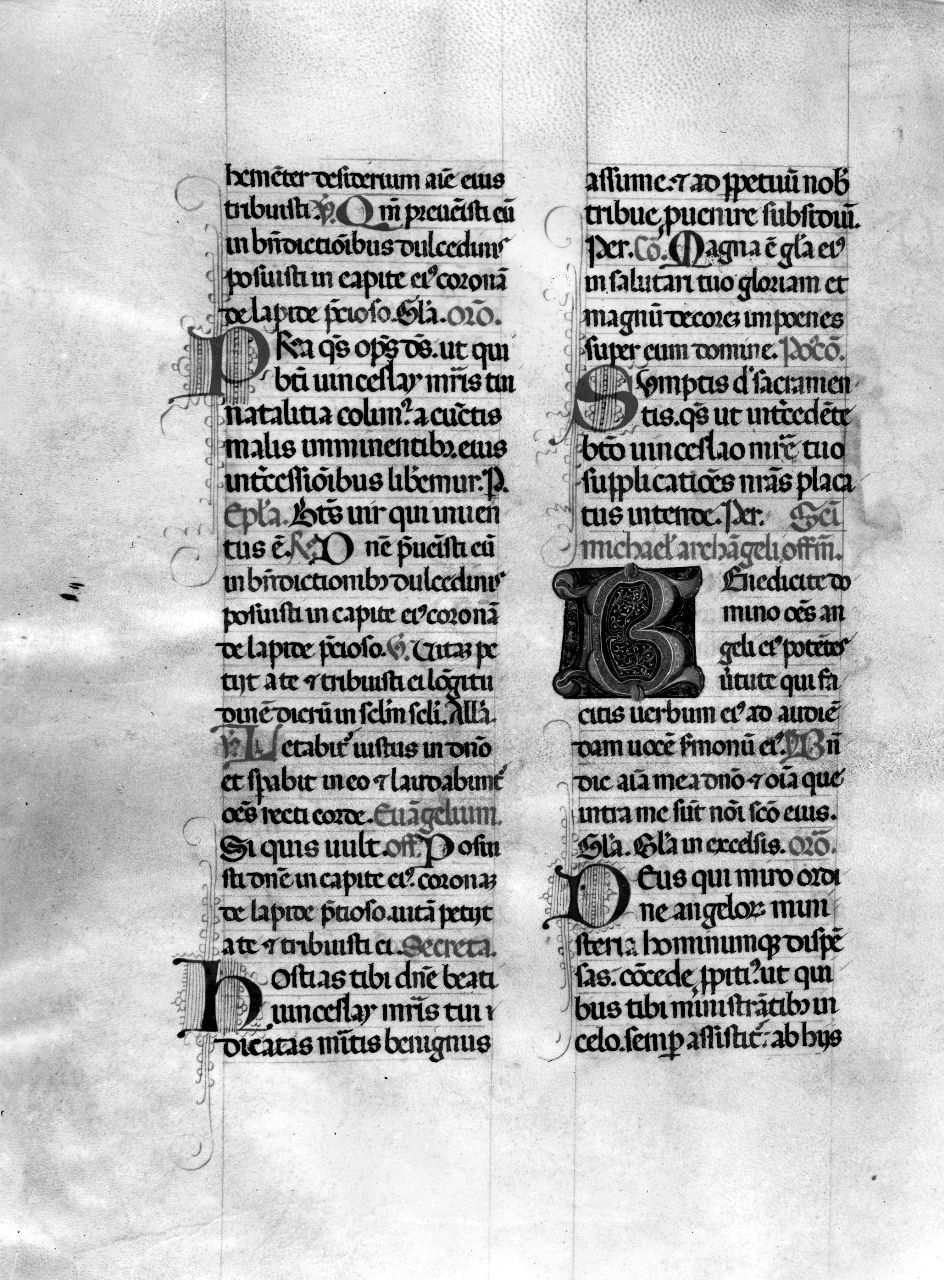 hemēter desiderium aīe eius
tribuisti. V̄. Qm̄ preuēisti eū
in bn̄dictiōibus dulcedinis
posuisti in capite eiꝰ coronā
de lapide p̄cioso. Gl̄a. or̄o.
PRĀ q̄s op̄s d̄s. ut qui
bt̄i uinceslay mr̄is tui
natalitia colimꝰ. a cūctis
malis imminentibꝫ eius
int̄cessiōibus lib̄emur. P.
Ep̄la. Bt̄s uir qui inuen
tus ē. R̄. Dn̄e p̄uēisti eū
in bn̄dictionibꝫ dulcedinis
posuisti in capite eiꝰ coronā
de lapide p̄cioso. V̄. Uitaꝫ pe
tijt a te ⁊ tribuisti ei lōgitu
dinē dierū in sclm̄ scl̄i. All̄a.
V̄. Letabit᷑ iustus in dn̄o
et sꝑabit in eo ⁊ laudabunt᷑
oēs recti corde. Euāgelium.
Si quis uult. off. Posui
sti dn̄e in capite eiꝰ. coronaꝫ
de lapide p̄cioso. uitā petijt
a te ⁊ tribuisti ei. Secreta.
Hostias tibi dn̄e beati
uinceslay mr̄is tui
dicatas mītis benignus
assume. ⁊ ad ꝑpetuū nob̄
tribue ꝓuenire subsidiū.
Per. Cō. Magna ē gl̄a eiꝰ
in salutari tuo gloriam et
magnū decoreꝫ impones
super eum domine. Po᷑cō.
Sumptis d᷑ sacramen
tis. q̄s ut int̄cedēte
bt̄o uinceslao mr̄e tuo
supplicatiōes nr̄as placa
tus intende. Per. Sc̄i
michael᷑ archāgeli offm̄.
Benedicite do
mino oēs an
geli eiꝰ potētes
ūtute qui fa
citis uerbum eiꝰ ad audiē
dam uocē s̄monū eiꝰ. V̄. Bn̄
dic aīa mea dn̄o ⁊ oīa que
intra me sūt nōi scō eius.
Gl̄a. Gl̄a in excelsis. or̄o.
DEus qui miro ordi
ne angeloꝝ mini
steria hominumqꝫ dispē
sas. cōcede ꝓpitiꝰ ut qui
bus tibi ministrātibꝫ in
celo. semꝑ assistit᷑. ab hijs